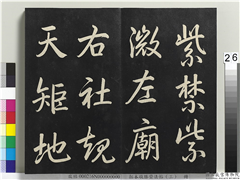 紫禁紫
微左廟
右社規
天矩地
26